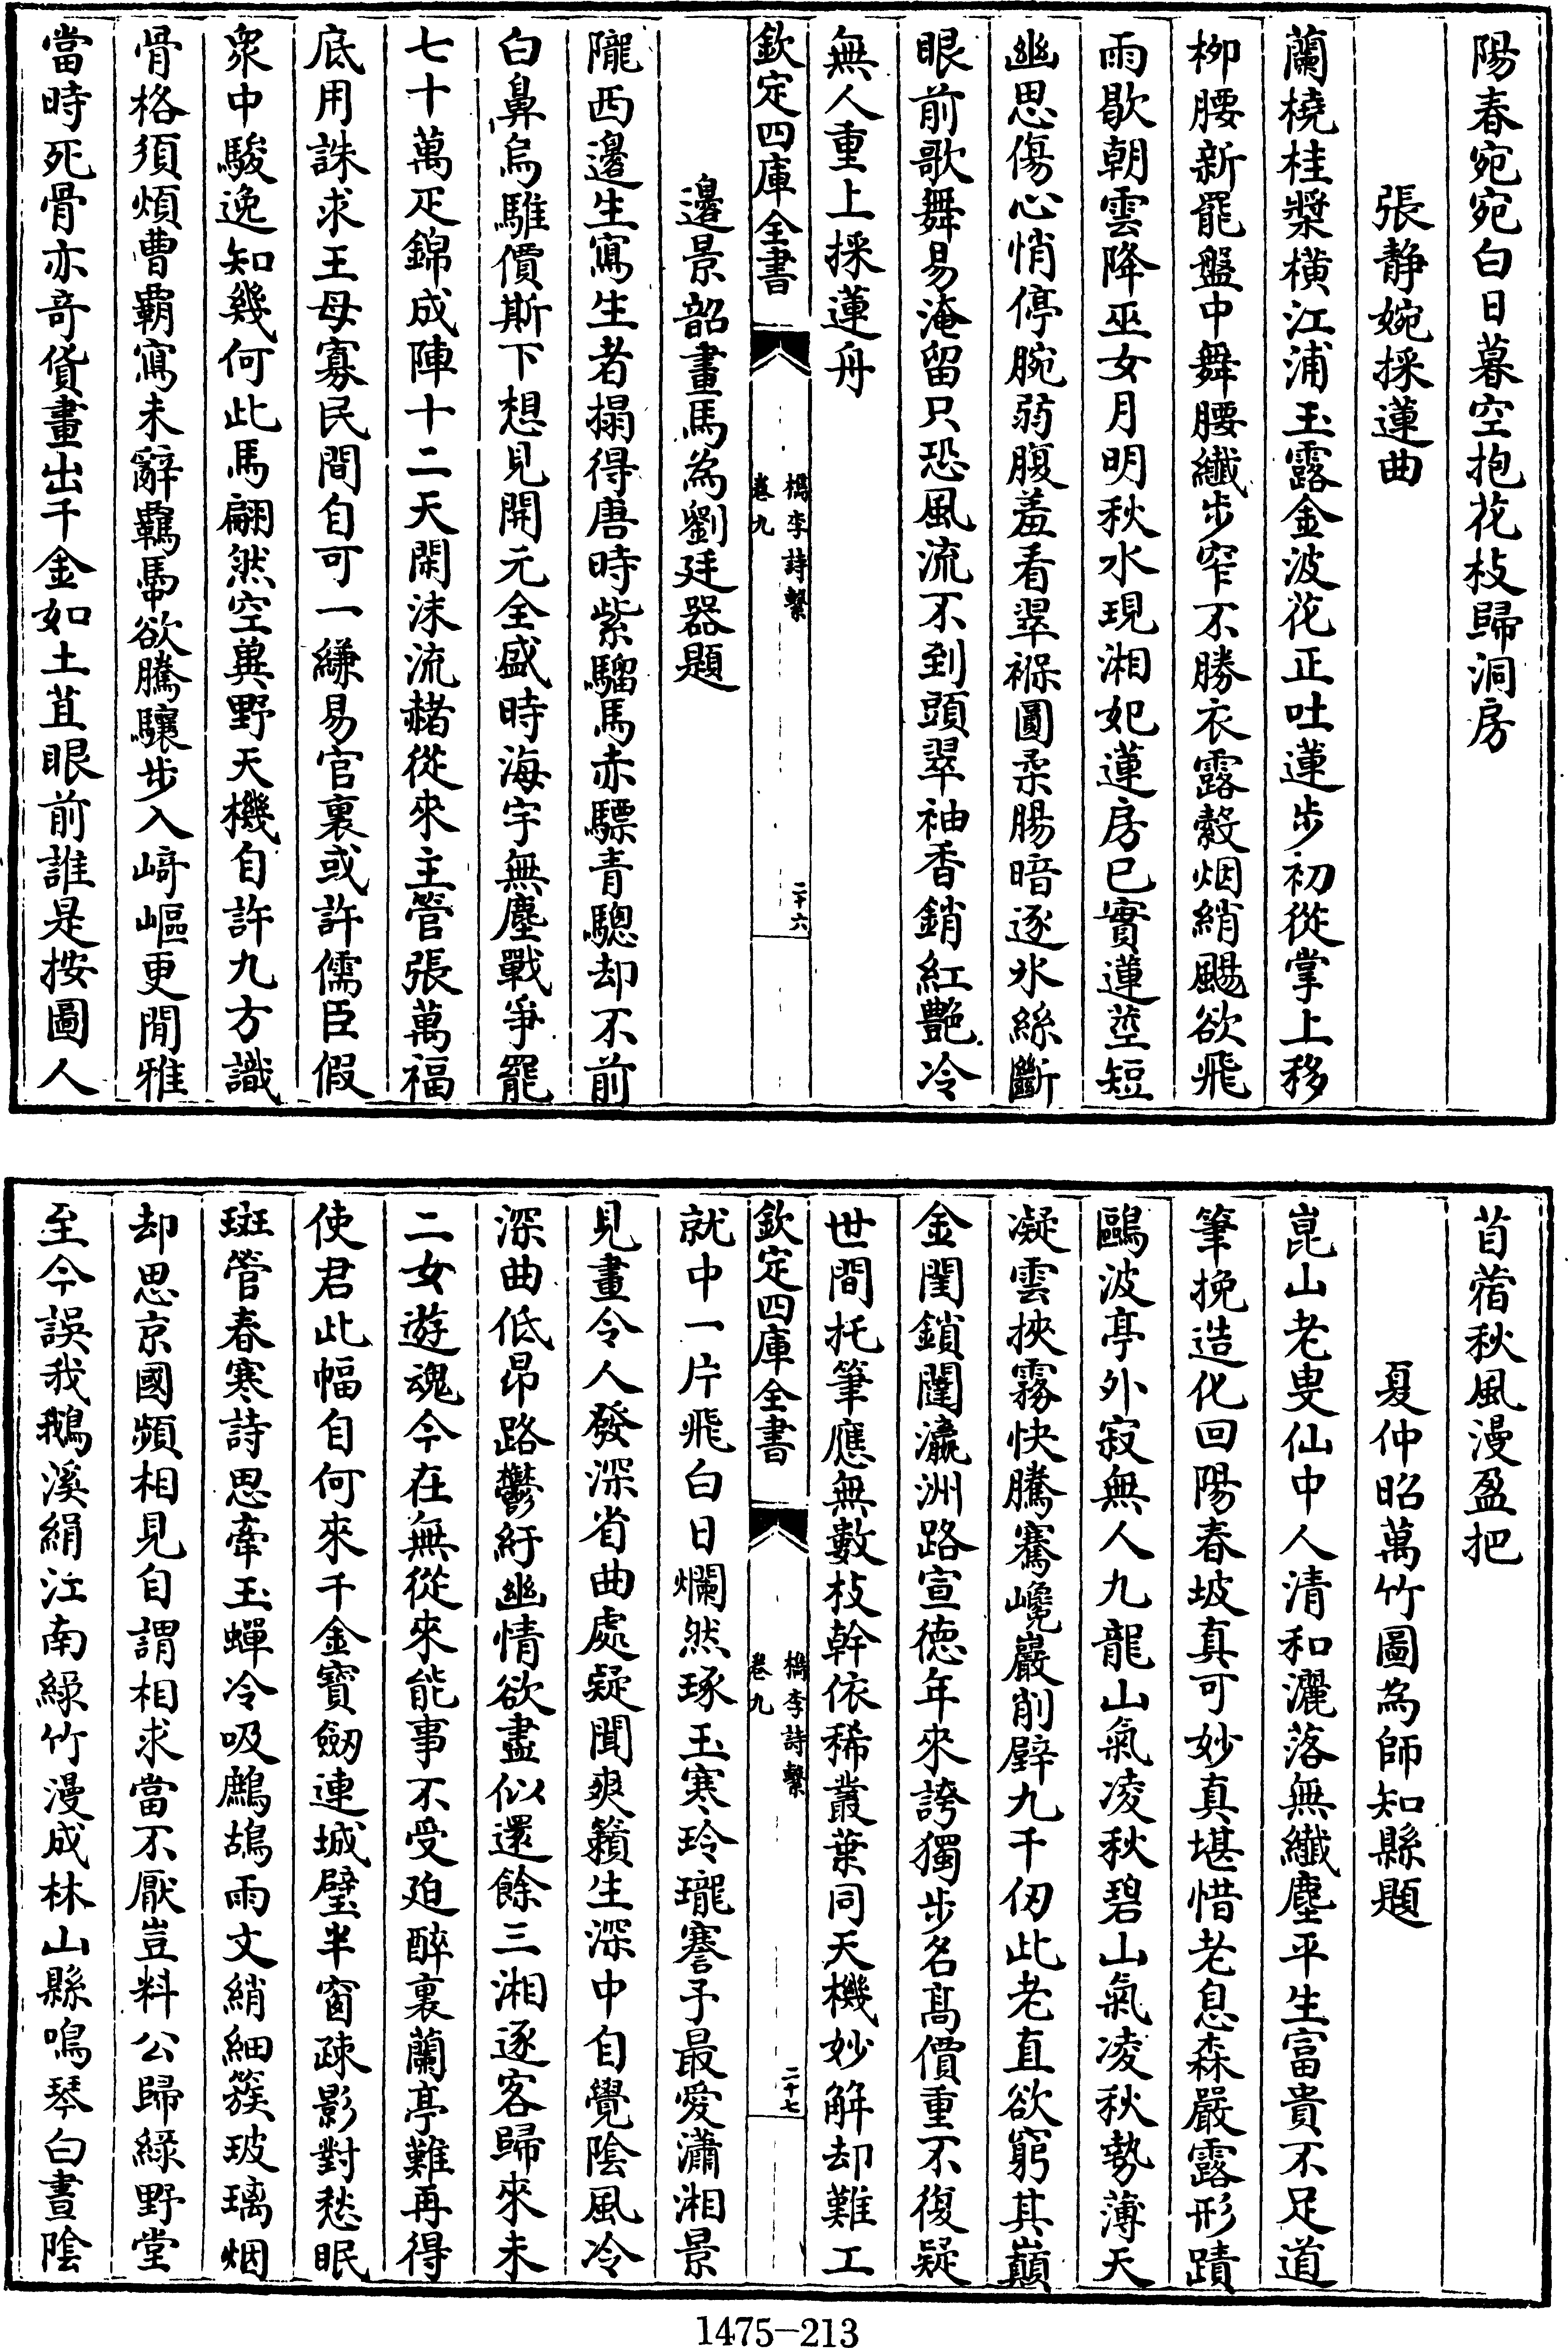 陽春宛宛白日暮空抱花枝歸洞房
張靜婉採蓮曲
蘭橈桂槳橫江浦玉露金波花正吐蓮步初從掌上移
柳腰新罷盤中舞腰纖步窄不勝衣露縠烟綃颺欲飛
雨歇朝雲降巫女月明秋水現湘妃蓮房已實蓮莖短
幽思傷心悄停腕弱腹羞看翠褓圓柔腸暗逐氷絲斷
眼前歌舞易淹留只恐風流不到頭翠袖香銷紅艷冷
無人重上採蓮舟
欽定四庫全書
檇李詩繫
卷九
二十六
邊景韶畫馬為劉廷器題
隴西邊生寫生者搨得唐時紫騮馬赤驃青驄却不前
白鼻烏騅價斯下想見開元全盛時海宇無塵戰爭罷
七十萬疋錦成陣十二天閑沫流赭從來主管張萬福
底用誅求王毋寡民間自可一縑易官裏或許儒臣假
衆中駿逸知幾何此馬翩然空冀野天機自許九方識
骨格須煩曹霸寫未辭羈馽欲騰驤步入崎嶇更閒雅
當時死骨亦奇貨畫出千金如土苴眼前誰是按圖人
苜蓿秋風漫盈把
夏仲昭萬竹圖為師知縣題
崑山老叟仙中人清和灑落無纖塵平生富貴不足道
筆挽造化回陽春坡真可妙真堪惜老息森嚴露形蹟
鷗波亭外寂無人九龍山氣凌秋碧山氣凌秋勢薄天
凝雲挾霧快騰騫巉巖削壁九千仞此老直欲窮其巔
金閨鎖闥瀛洲路宣德年來誇獨步名髙價重不復疑
世間托筆應無數枝幹依稀叢葉同天機妙解却難工
欽定四庫全書
檇李詩繫
卷九
二十七
就中一片飛白日爛然琢玉寒玲瓏謇予最愛瀟湘景
見畫令人發深省曲處疑聞爽籟生深中自覺陰風冷
深曲低昂路鬱紆幽情欲盡似還餘三湘逐客歸來未
二女遊魂今在無從來能事不受迫醉裏蘭亭難再得
使君此幅自何來千金寶劔連城璧半窗疎影對愁眠
斑管春寒詩思牽玉蟬冷吸鷓鴣雨文綃細簇玻璃烟
却思京國頻相見自謂相求當不厭豈料公歸綠野堂
至今誤我鵝溪絹江南綠竹漫成林山縣鳴琴白晝陰
1475—213